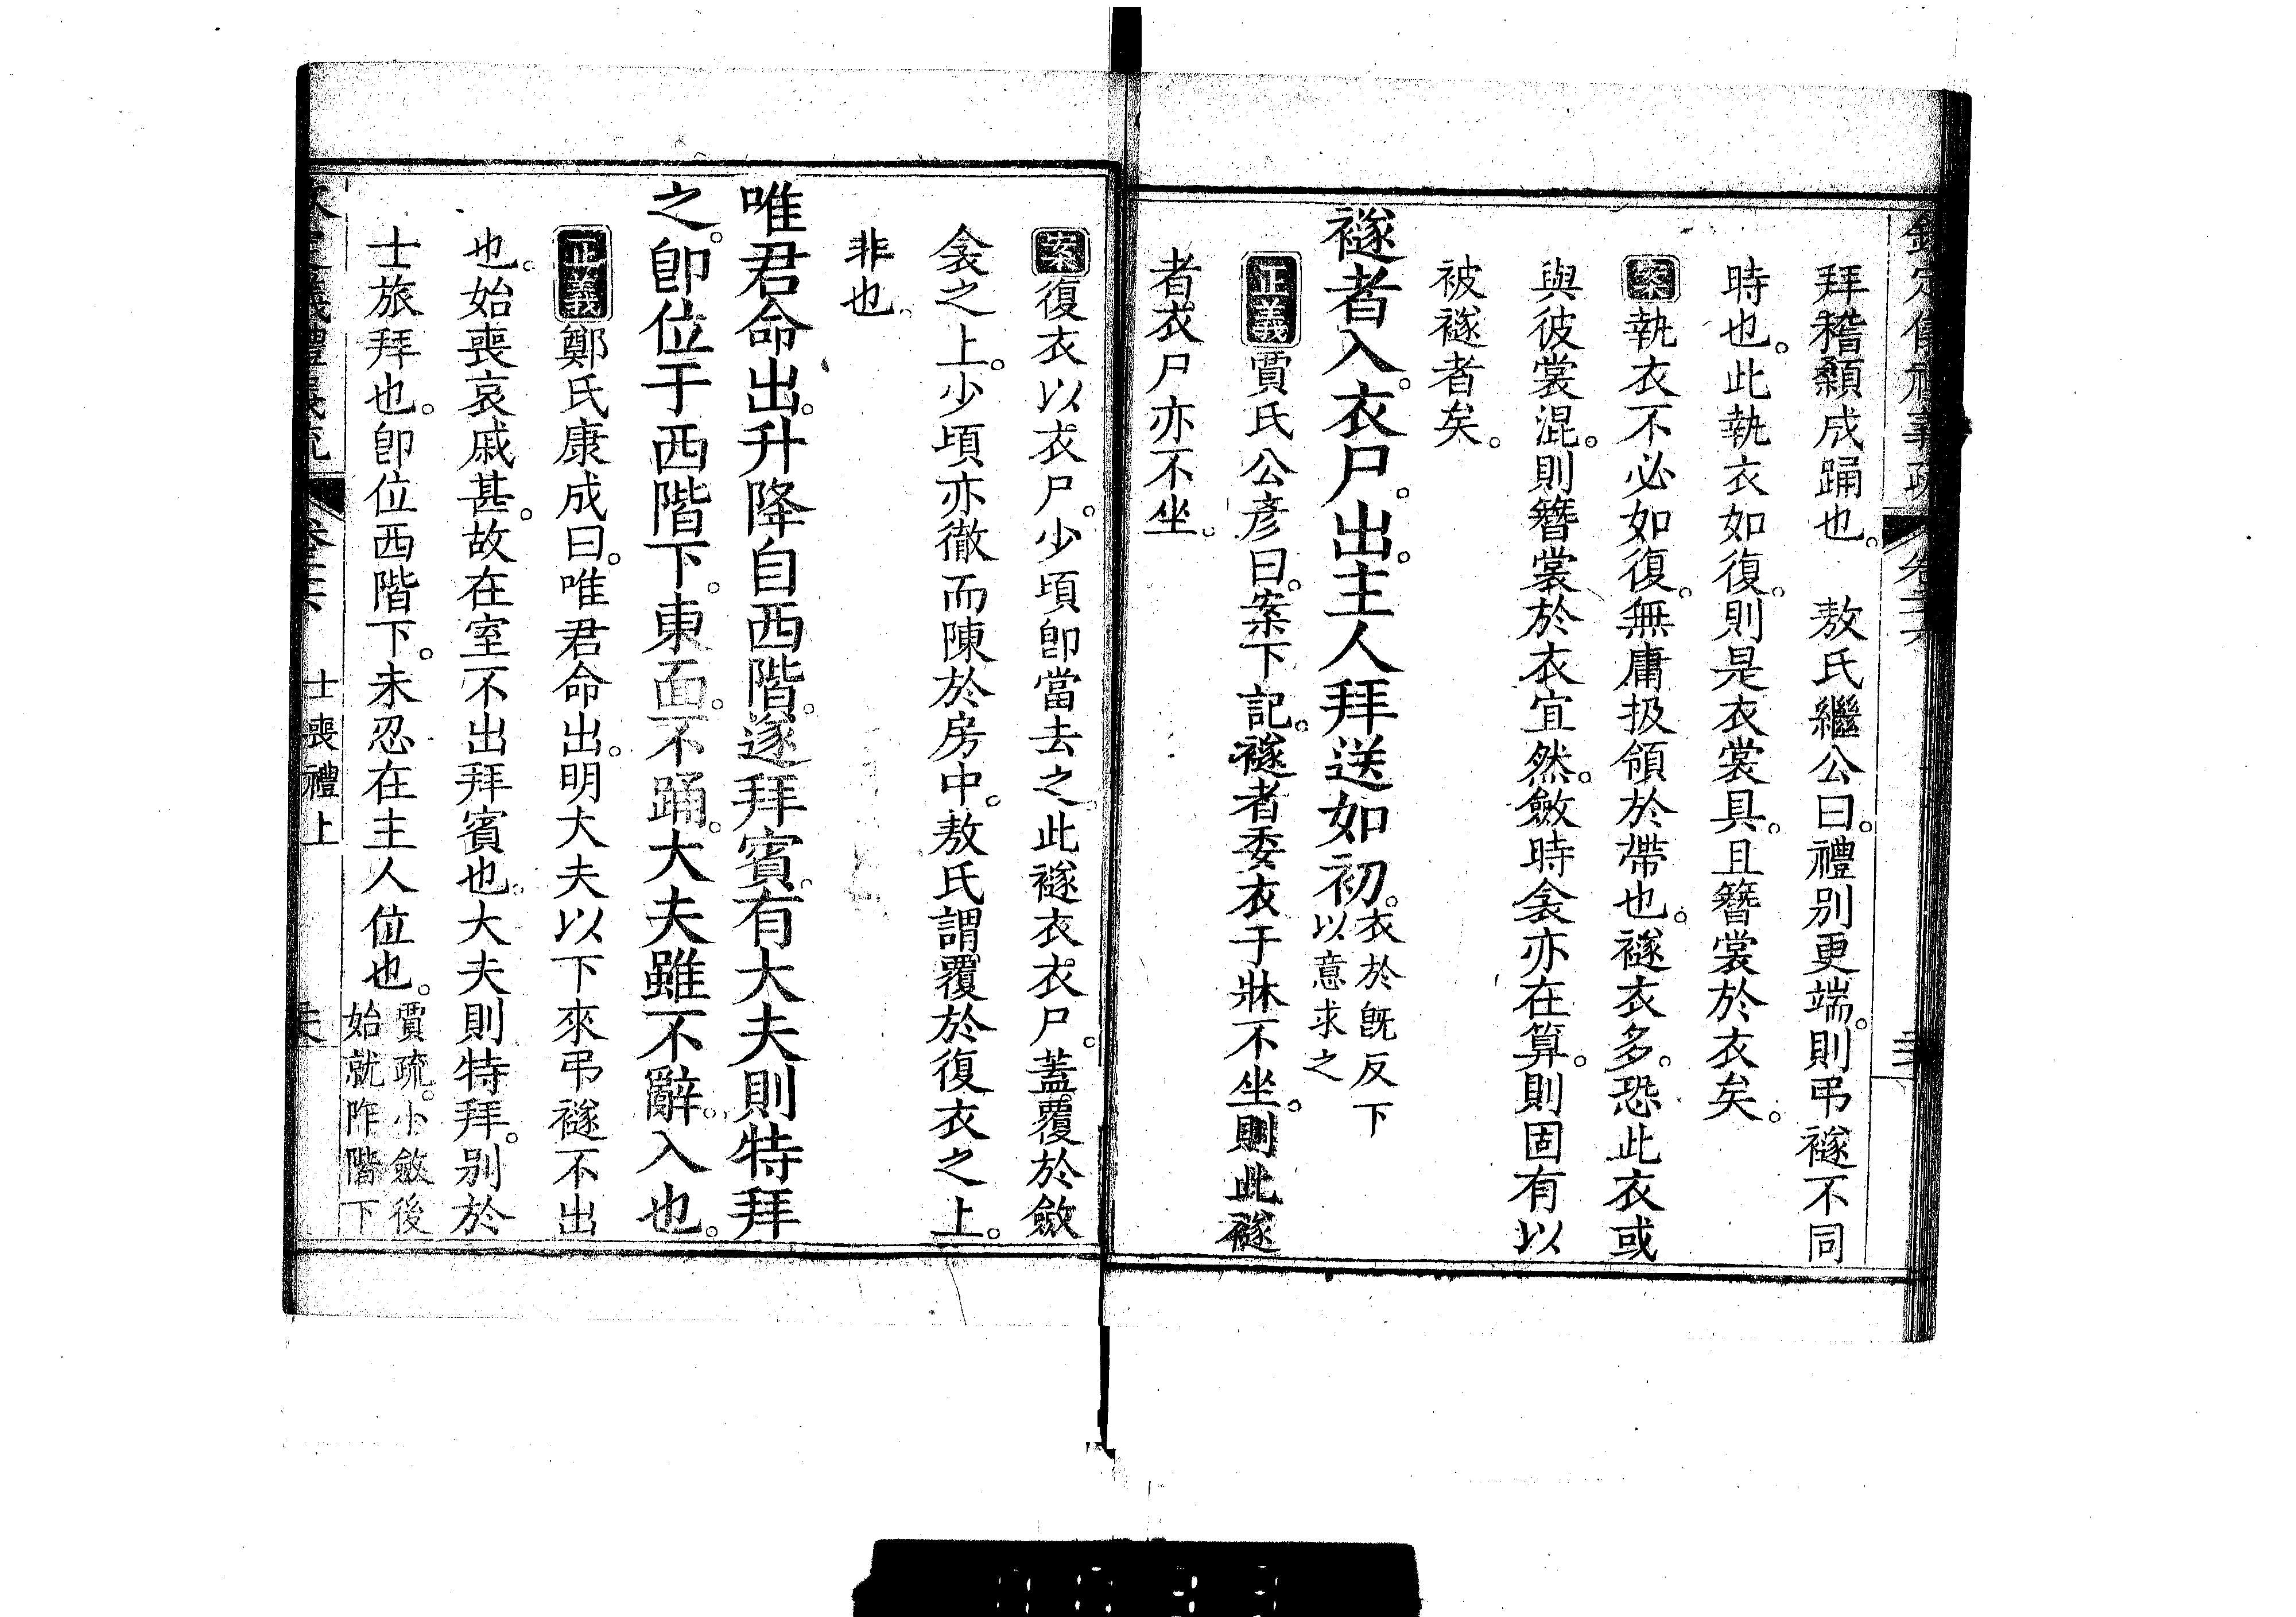 拜稽顙成踊也。　敖氏繼公曰。禮別更端。則弔襚不同
時也。此執衣如復。則是衣裳具。且簪裳於衣矣。
案執衣不必如復。無庸扱領於帶也。襚衣多。恐此衣或
與彼裳混。則簪裳於衣宜然。斂時衾亦在算。則固有以
被襚者矣。
襚者入。衣尸。出。主人拜送如初。衣於既反下以意求之
正義賈氏公彥曰。案下記。襚者委衣于牀不坐。則此襚
者衣尸亦不坐。
案復衣以衣尸。少頃卽當去之。此襚衣衣尸。蓋覆於斂
衾之上。少頃亦徹而陳於房中。敖氏謂覆於復衣之上。
非也。
唯君命出。升降自西階。遂拜賓。有大夫則特拜
之。卽位于西階下。東面。不踊。大夫雖不辭。入也。
正義鄭氏康成曰。唯君命出。明大夫以下來弔襚不出
也。始喪哀戚甚。故在室不出拜賓也。大夫則特拜。別於
士旅拜也。卽位西階下。未忍在主人位也。賈疏。小斂後始就阼階下
士喪禮上